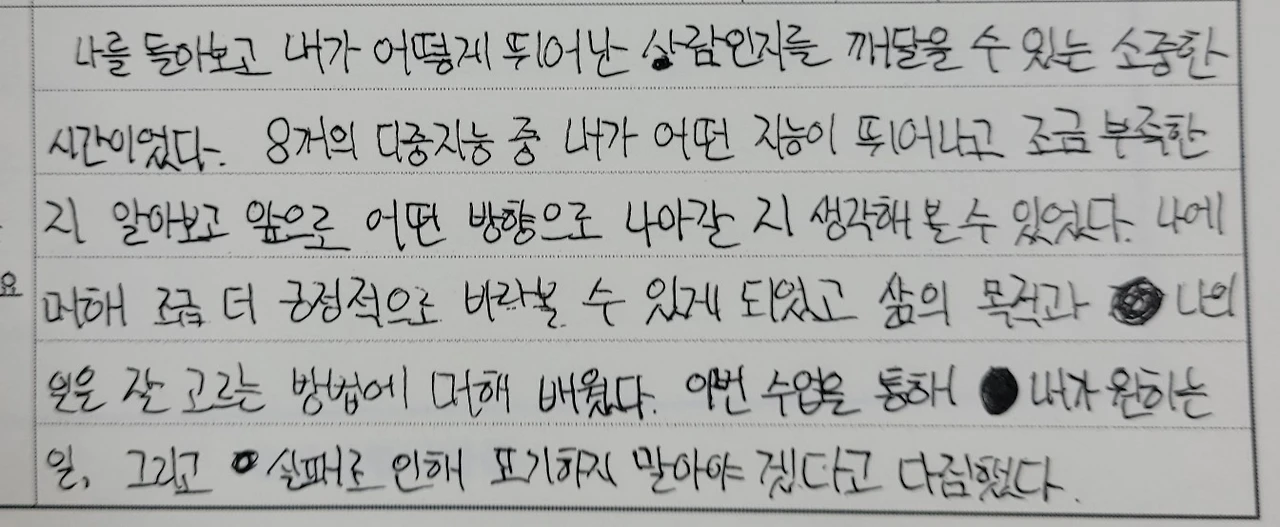 나를 돌아보고 내가 어떻게 뛰어난 사람인지를 깨달을 수 있는 소중한
시간이었다. 8개의 다중지능 중 내가 어떤 지능이 뛰어나고 조금 부족한
지 알아보고 앞으로 어떤 방향으로 나아갈 지 생각해 볼 수 있었다. 나에
대해 조금 더 긍정적으로 바라볼 수 있게 되었고 삶의 목적과 나의
일을 잘 고르는 방법에 대해 배웠다. 이번 수업을 통해 내가 원하는
일, 그리고 실패로 인해 포기하지 말아야 겠다고 다짐했다.
요